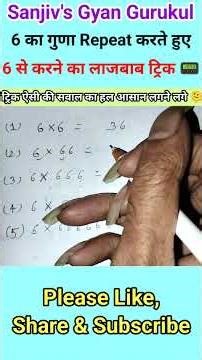 Sanjiv's Gyan Gurukul
6 का गुणा Repeat करते हुए
6 से करने का लाजबाब ट्रिक
ट्रिक ऐसी की सवाल का हल आसान लगने लगे
(1) 6 × 6 = 36
(2) 6 × 66 =
(3) 6 × 666 =
(4) 6 ×
(5) 6 ×
Please Like,
Share & Subscribe